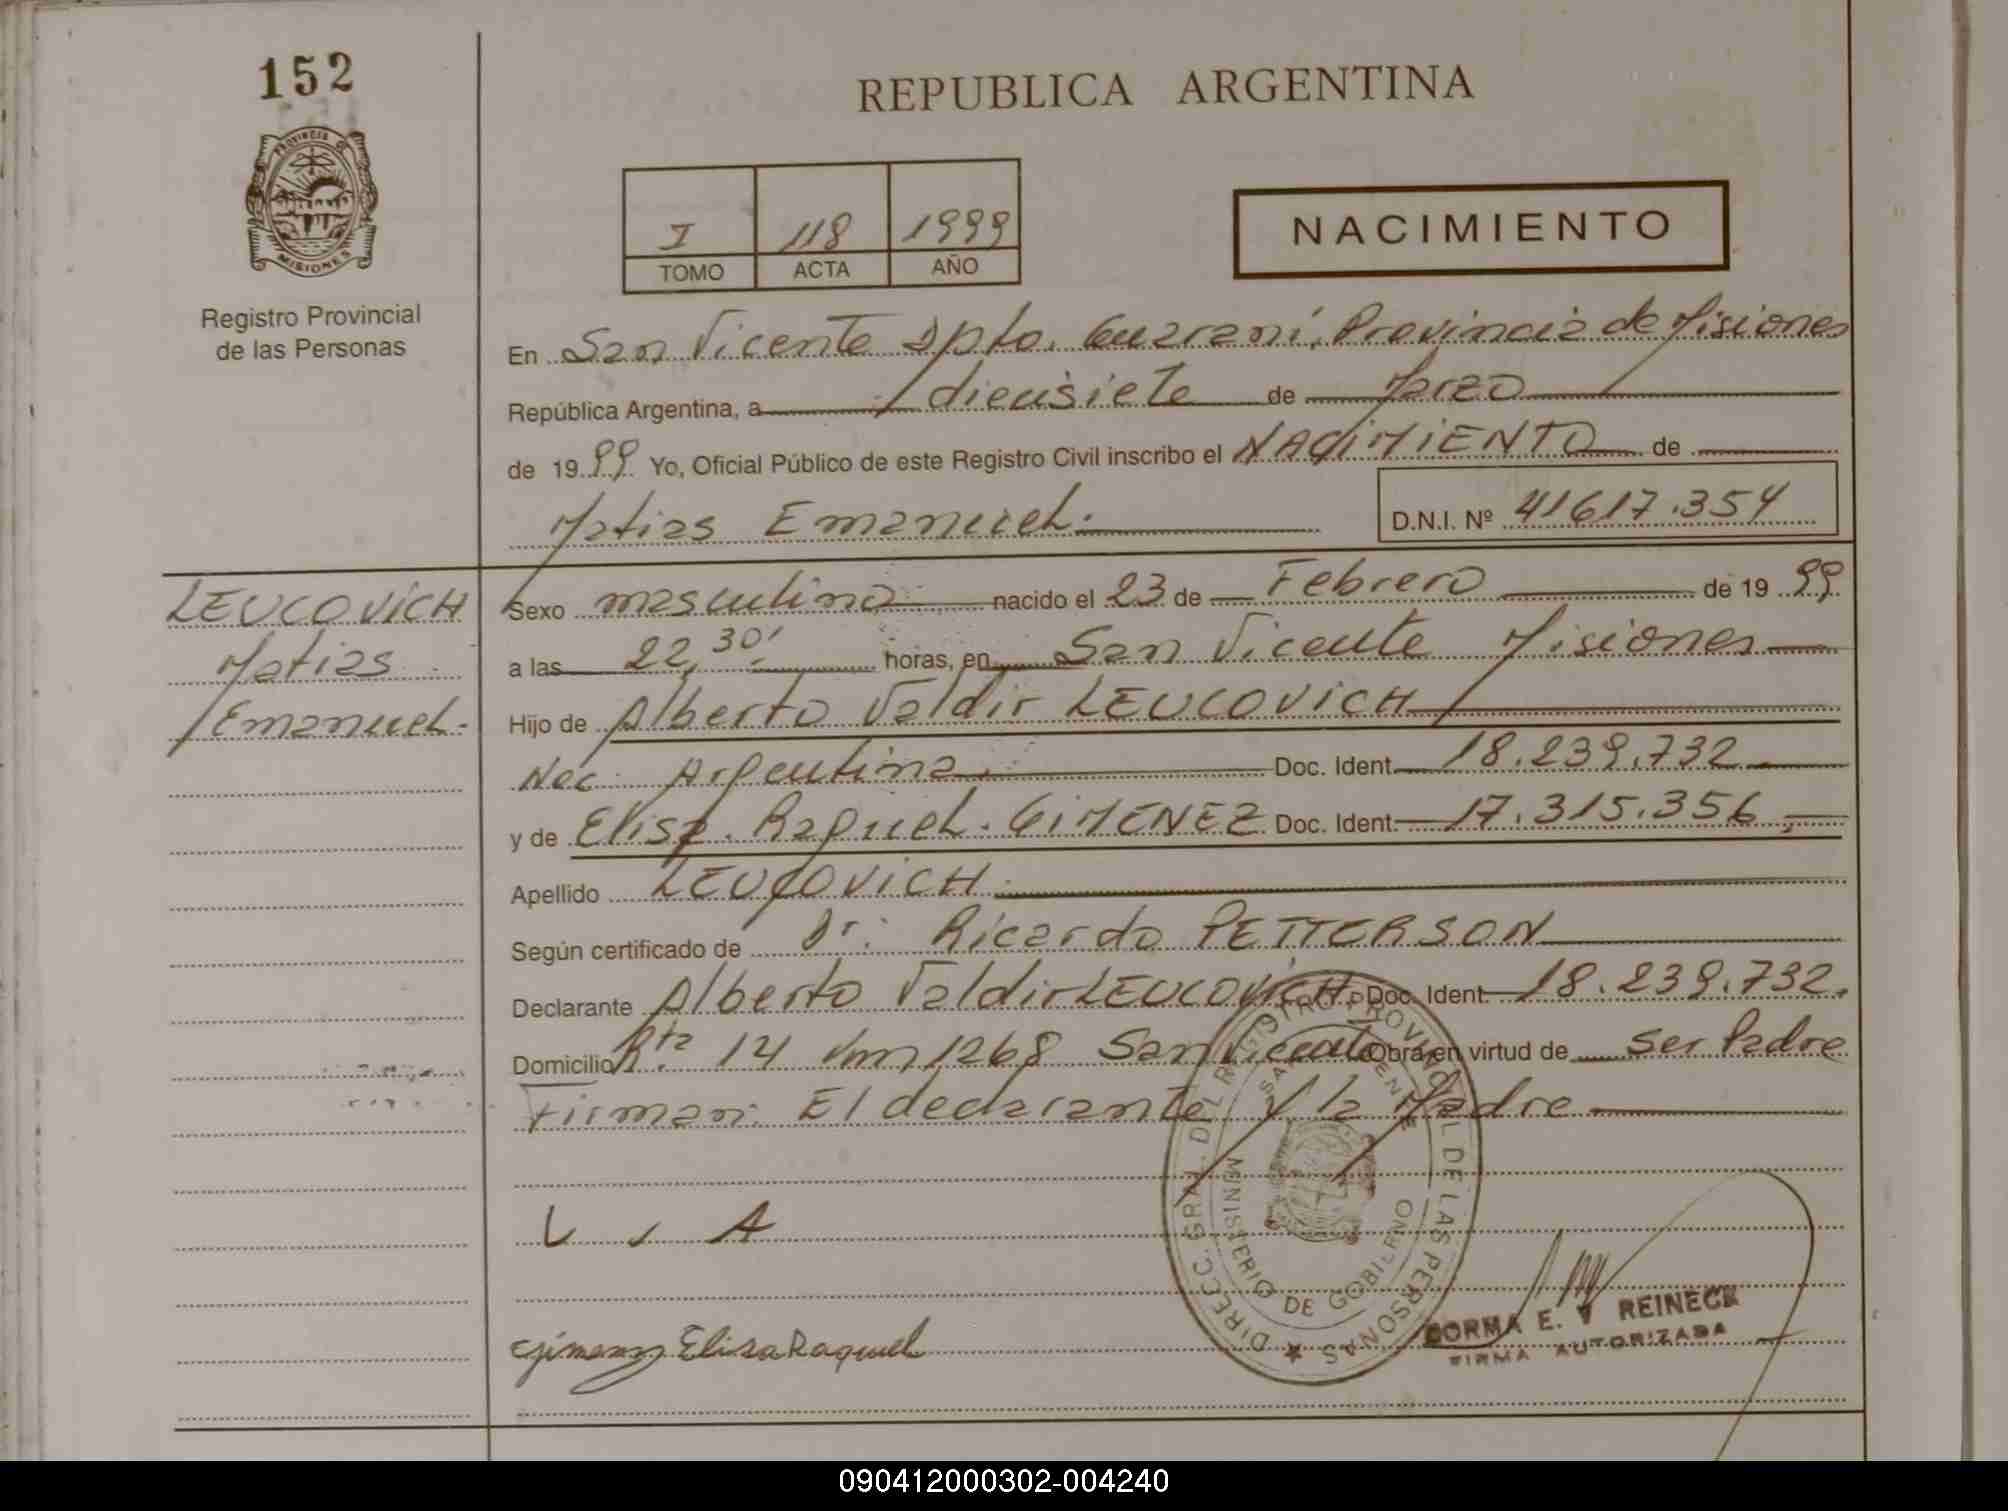 152
REPUBLICA ARGENTINA
PROVINCIA DE
MISIONES
Registro Provincial
de las Personas
I 118 1999
TOMO ACTA AÑO
NACIMIENTO
En San Vicente Dpto. Guaraní, Provincia de Misiones
República Argentina, a diecisiete de Marzo
de 1999 Yo, Oficial Público de este Registro Civil inscribo el NACIMIENTO de
Matias Emanuel.
D.N.I. Nº 41617.354
LEUCOVICH
Matias
Emanuel.
Sexo masculino nacido el 23 de Febrero de 1999
a las 22,30' horas, en San Vicente Misiones
Hijo de Alberto Valdir LEUCOVICH
Nac. Argentina. Doc. Ident. 18.239.732
y de Elisa. Raquel. GIMENEZ Doc. Ident. 17.315.356,
Apellido LEUCOVICH.
Según certificado de Dr. Ricardo PETTERSON
Declarante Alberto Valdir LEUCOVICH Doc. Ident. 18.239.732.
Domicilio Rta. 14 Km 1268 San Vicente Obra en virtud de Ser Padre
Firman: El declarante y la Madre
L V A
DIRECC. GRAL. DEL REGISTRO PROVINCIAL DE LAS PERSONAS
SAN VICENTE
MINISTERIO DE GOBIERNO
Gimenez Elisa Raquel
NORMA E. V REINECK
FIRMA AUTORIZADA
090412000302-004240